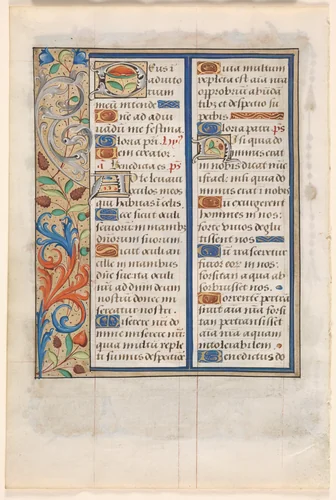 Deus i
adiuto
rium
meū intende
Dn̄e ad adiu
uādū me festina.
Gloria pr̄i.
Benedicta es p̄s
Ad te leuaui
oculos meos
qui habitas ī celis.
Ecce sicut oculi
seruorū in manibꝰ
dominorum suorum.
Sicut oculi an
cille in manibus
dn̄e sue ita oculi
nr̄i ad dn̄m deum
nostrū donec mi
sereatur nostri.
Miserere nr̄i do
mine miserere nr̄i
quia multū reple
ti sumus despectiōe
Quia multum
repleta est aīa nr̄a
opprobriū abūdā
tibꝰ et despectio su
perbis
Gloria patri. p̄s
Nisi quia do
minus erat
in nobis dicat nūc
israel: nisi quia do
minus erat ī nobis
Cum exurgerent
homines in nos:
forte viuos deglu
tissent nos
Cū irasceretur
furor eorū in nos:
forsitan aqua ab
sorbuisset nos.
Torrentē pertrā
siuit aīa nr̄a: forsi
tan pertransisset
aīa nr̄a aquam
intolerabilem.
Benedictus do